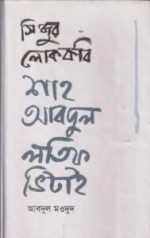 সিন্ধুর
লোককবি
শাহ
আবদুল
লতিফ
ভিটাই
আবদুল মওদুদ